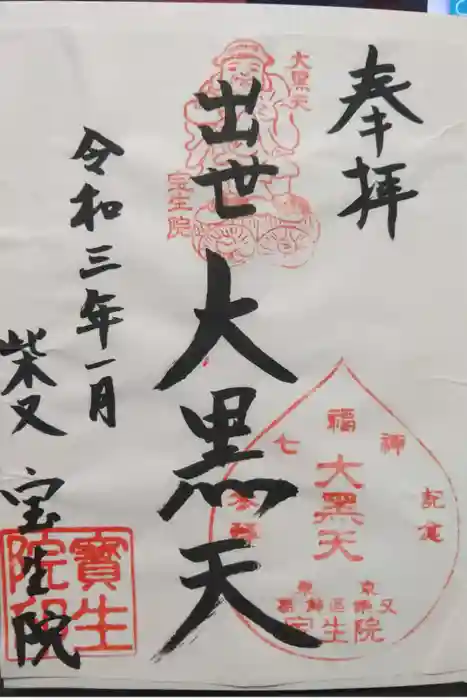 奉拝
大黒天
宝生院
出世大黒天
七福神
参拝
記念
大黑天
東京
葛飾区柴又
宝生院
令和三年一月
柴又宝生院
寶生院印